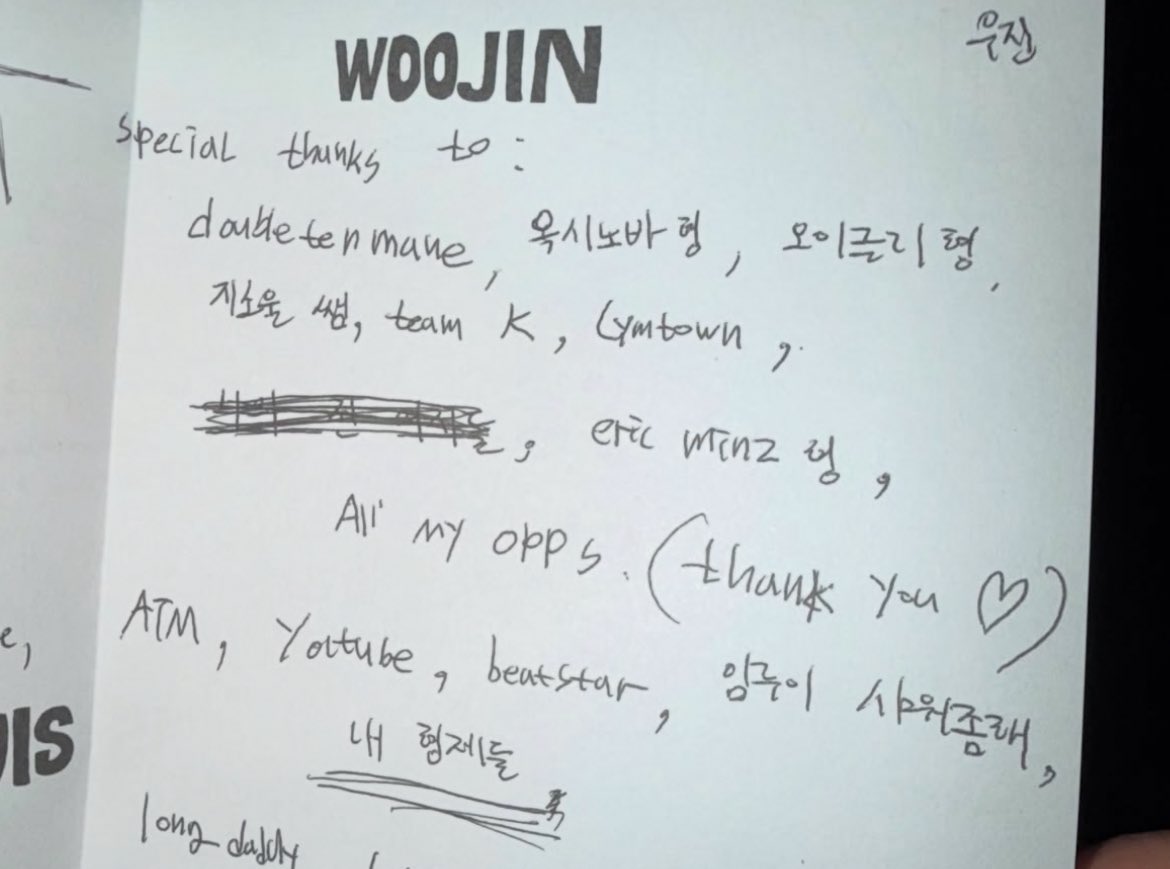 WOOJIN
우진
special thanks to :
doubletenmane, 옥시노바 형, 오이글리 형,
지소울 쌤, team K, Lymtown,
eric minz 형,
All my opps. (thank you ♡)
ATM, Youtube, beatstar, 임주이 샤워좀해,
내 형제들
long daddy